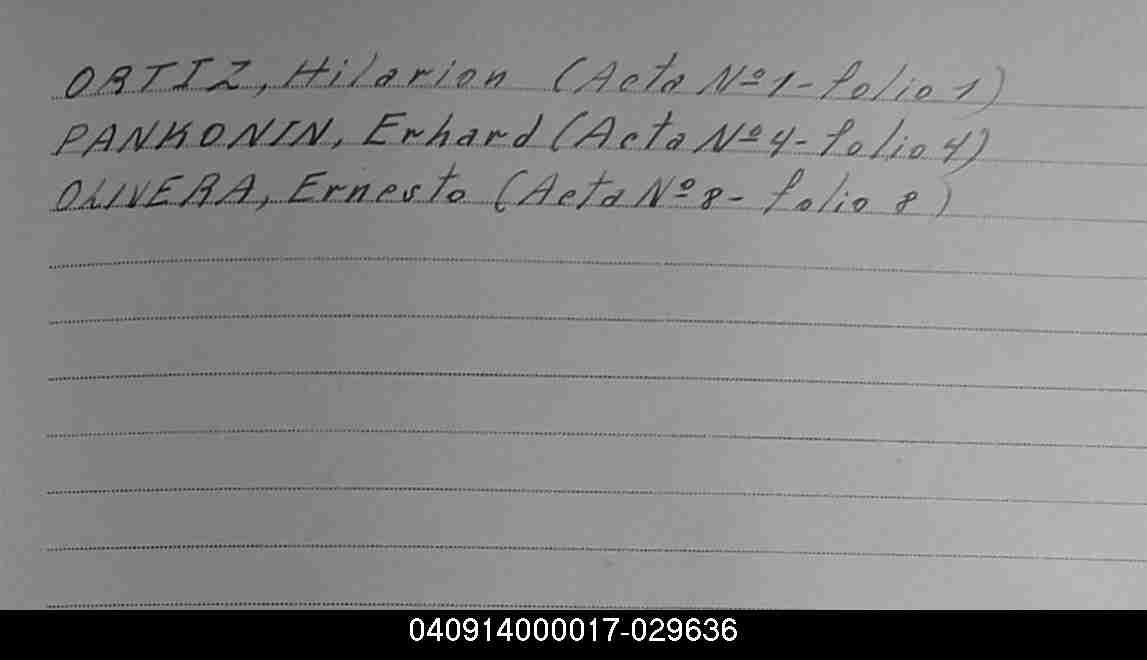 ORTIZ, Hilarion (Acta Nº 1 - folio 1)
PANKONIN, Erhard (Acta Nº 4 - folio 4)
OLIVERA, Ernesto (Acta Nº 8 - folio 8)
040914000017-029636